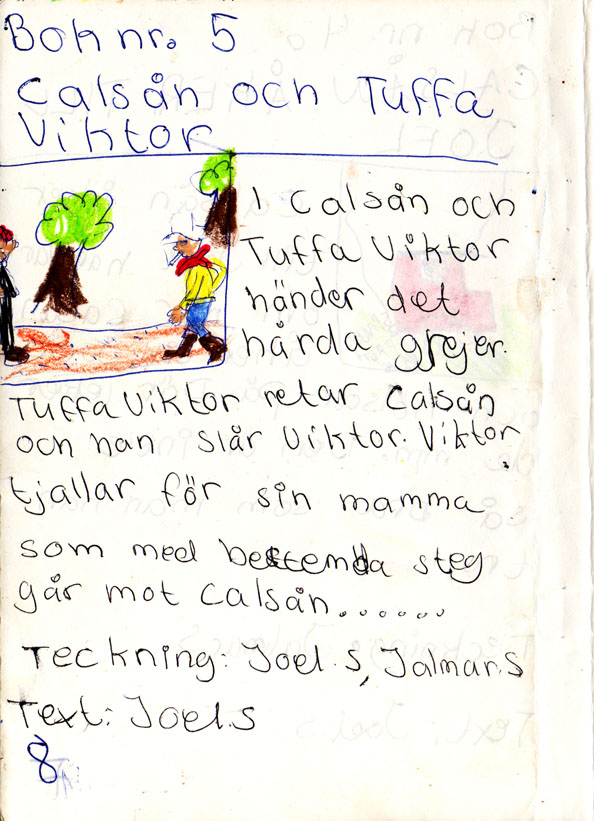 Bok nr. 5
Calsån och Tuffa
Viktor
I Calsån och
Tuffa Viktor
händer det
hårda grejer.
Tuffa Viktor retar Calsån
och han slår Viktor. Viktor
tjallar för sin mamma
som med bestemda steg
går mot Calsån.......
Teckning: Joel.S, Jalmar.S
Text: Joel.S
8